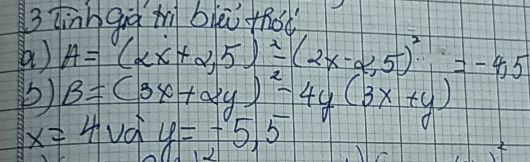 3 Tính giá trị biểu thức
a) A = (2x + 2,5)² - (2x - 2,5)² = -4,5
b) B = (3x + 2y)² - 4y(3x + y)
x = 4 và y = -5,5